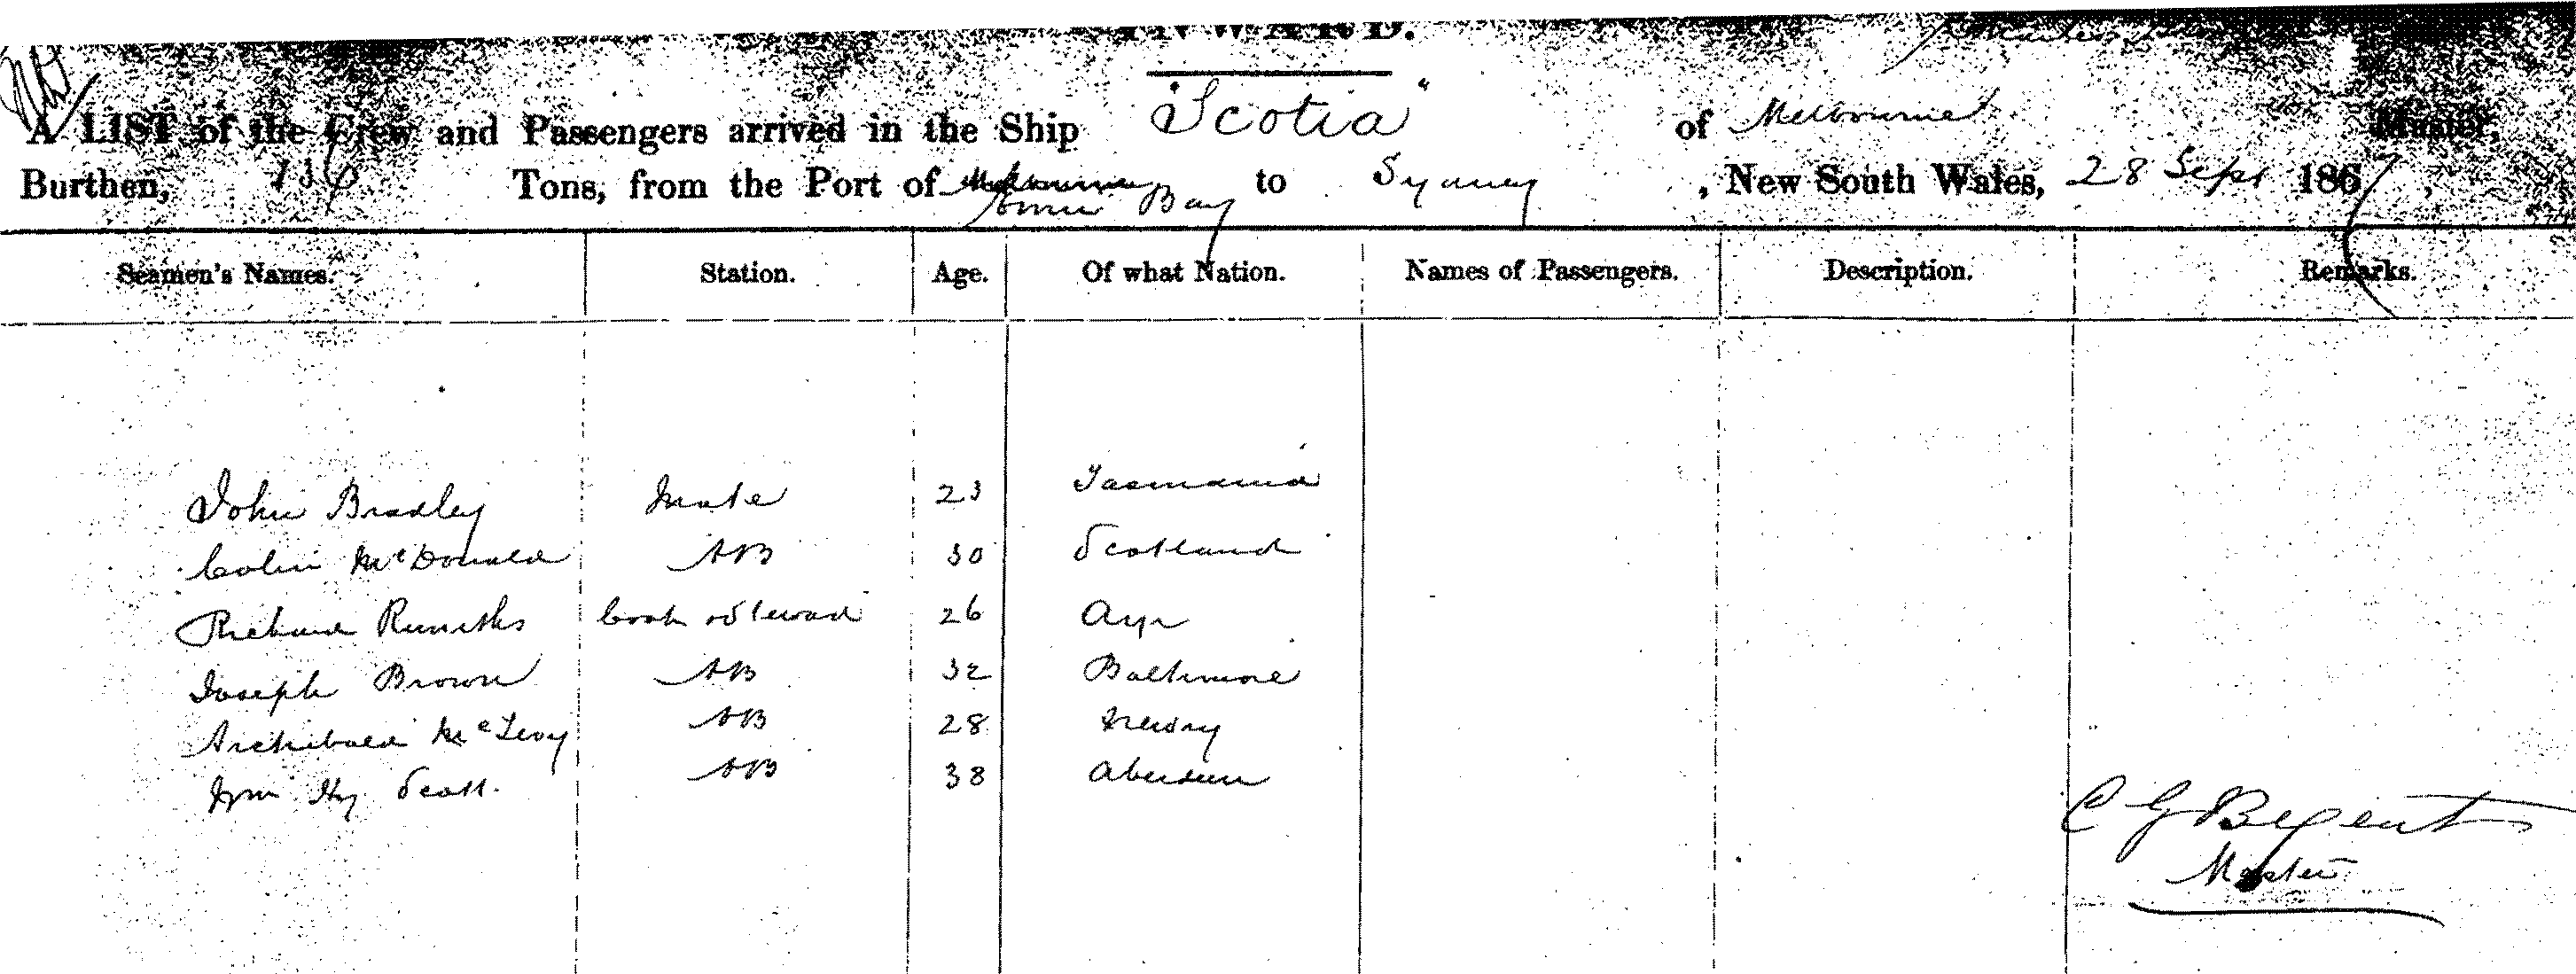 INWARD.
A LIST of the Crew and Passengers arrived in the Ship "Scotia" of Melbourne Master,
Burthen, 136 Tons, from the Port of Melbourne Bay to Sydney, New South Wales, 28 Sept 1867,
Seamen's Names. Station. Age. Of what Nation. Names of Passengers. Description. Remarks.
John Bradley Mate 23 Tasmania
Colin McDonald AB 30 Scotland
Richard Cook & Steward 26 Ayr
Joseph Brown AB 32 Baltimore
Archibald McLevy AB 28 Newry
Wm Hy Scott. AB 38 Aberdeen
C G
Master